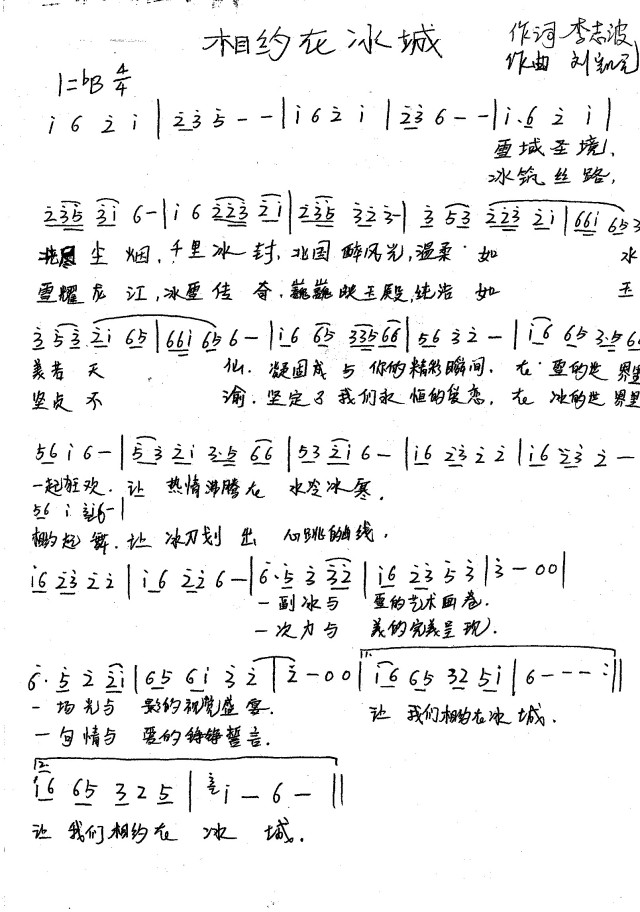 相约在冰城
作词 李志波
作曲 刘凯元
1=bB 4/4
i 6 2 i | 2 3 5 - - | i 6 2 i | 2 3 6 - - | i. 6 2 i |
雪域圣境,
冰筑丝路,
235 3i 6- | i 6 223 2i | 235 323- | 3 53 223 2i | 66i 653
尘烟,千里冰封,北国醉风光,温柔 如 水
雪耀龙江,冰雪传奇,巍巍映玉殿,纯洁 如 玉
3 53 2i 65 | 66i 65 6- | i6 65 33566 | 56 32- | i6 65 3.5 6
美若天 仙.凝固成与你的精彩瞬间.在雪的世界里
坚贞不 渝.坚定了我们永恒的爱恋,在冰的世界里
56 i 6- | 53 2i 3.5 66 | 53 2i 6- | i6 23 2 2 | i6 23 2 -
一起狂欢.让 热情沸腾在 水冷冰寒.
56 i 6- |
相约起舞.让 冰刀划出 心跳的曲线.
i6 23 2 2 | i6 22 6- | 6. 5 3 32 | i6 23 5 3 | 3 - 0 0 |
一副冰与 雪的艺术画卷.
一次力与 美的完美呈现.
6. 5 2 2i | 65 6i 3 2 | 2 - 0 0 | 1. i6 65 32 5i | 6 - - - :||
一场光与 影的视觉盛宴. 让 我们相约在冰城.
一句情与 爱的铮铮誓言.
2. i6 65 3 2 5 | i — 6 — ||
让 我们相约在 冰 城.